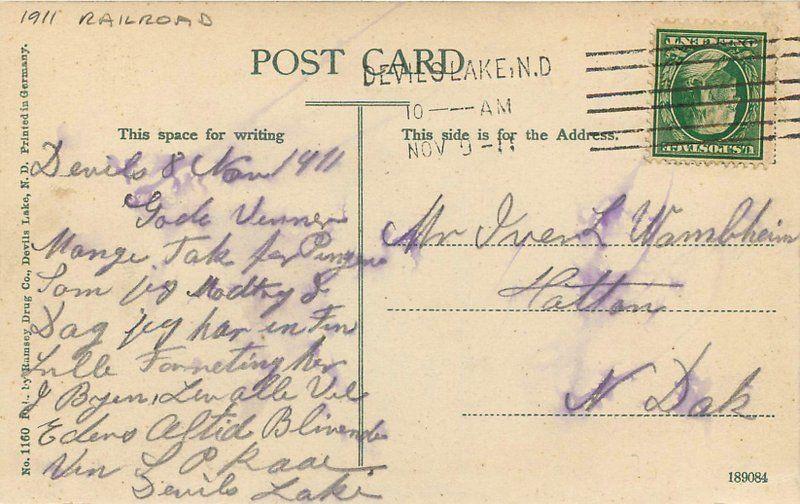 1911 RAILROAD
POST CARD
DEVILS LAKE, N.D
10 — AM
NOV 9 - 11
U.S. POSTAGE
ONE CENT
This space for writing
This side is for the Address.
Devils 8 Nov 1911
Gode Venner
Mange Tak for Pengene
Som jeg Modtog I
Dag jeg har in Fin
Lille Forretning her
I Byen, Lev alle Vel
Eders Altid Blivende
Ven L P Raae
Devils Lake
Mr Iver L Wambheim
Hatton
N Dak
No. 1160 by Ramsey Drug Co., Devils Lake, N. D. Printed in Germany.
189084